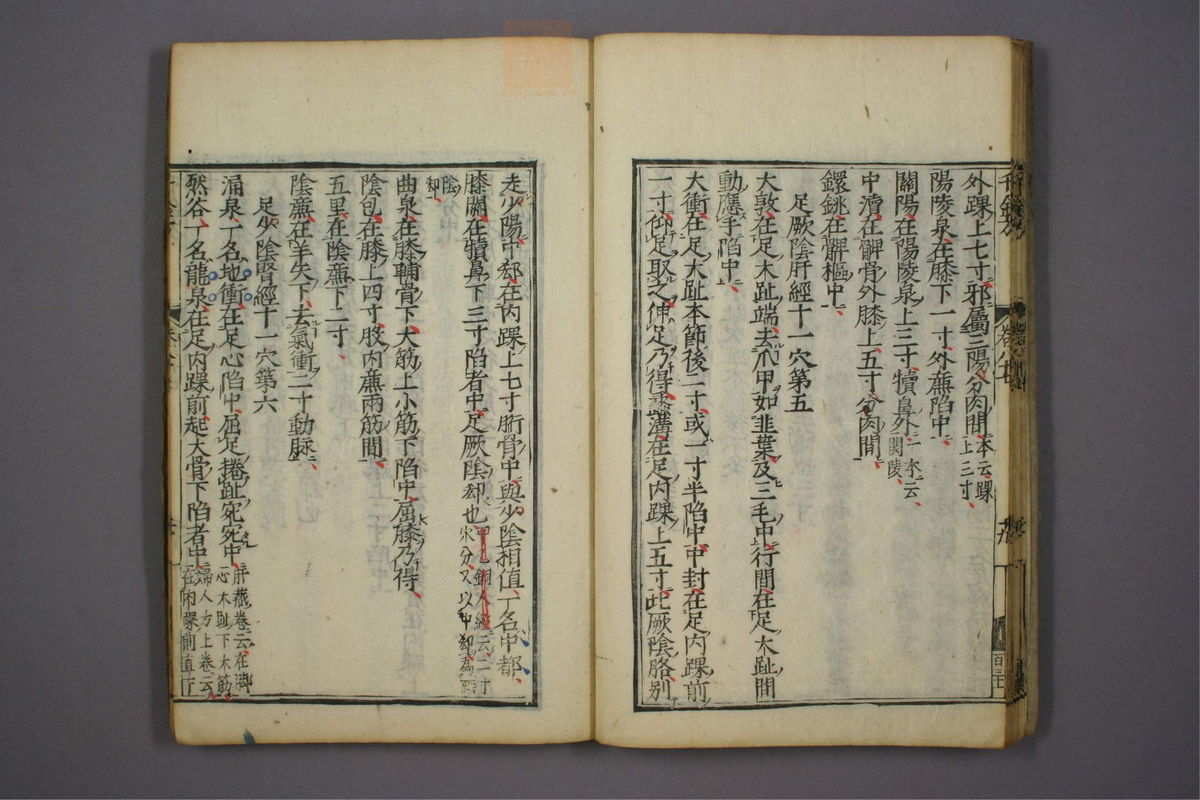 外踝上七寸邪屬三陽分肉間本云踝上三寸
陽陵泉在膝下一寸外廉陷中
關陽在陽陵泉上三寸犢鼻外一本云關陵
中瀆在髀骨外膝上五寸分肉間
鐶銚在髀樞中
足厥陰肝經十一穴第五
大敦在足大趾端去爪甲如韭葉及三毛中行間在足大趾間
動應手陷中
大衝在足大趾本節後二寸或一寸半陷中中封在足內踝前
一寸仰足取之伸足乃得蠡溝在足內踝上五寸此厥陰胳別
走少陽中郄在內踝上七寸胻骨中與少陰相值一名中都
膝關在犢鼻下三寸陷者中足厥陰郄也甲乙銅人經云二寸半分又以中郄為
陰郄
曲泉在膝輔骨下大筋上小筋下陷中屈膝乃得
陰包在膝上四寸股內廉兩筋間
五里在陰廉下二寸
陰廉在羊矢下去氣衝二寸動脉
足少陰腎經十一穴第六
涌泉一名地衝在足心陷中屈足捲趾宛宛中肝藏卷云在脚心大趾下大筋
然谷一名龍泉在足內踝前起大骨下陷者中婦人方上卷云在內踝前直下
千金方
卷八十
百三十